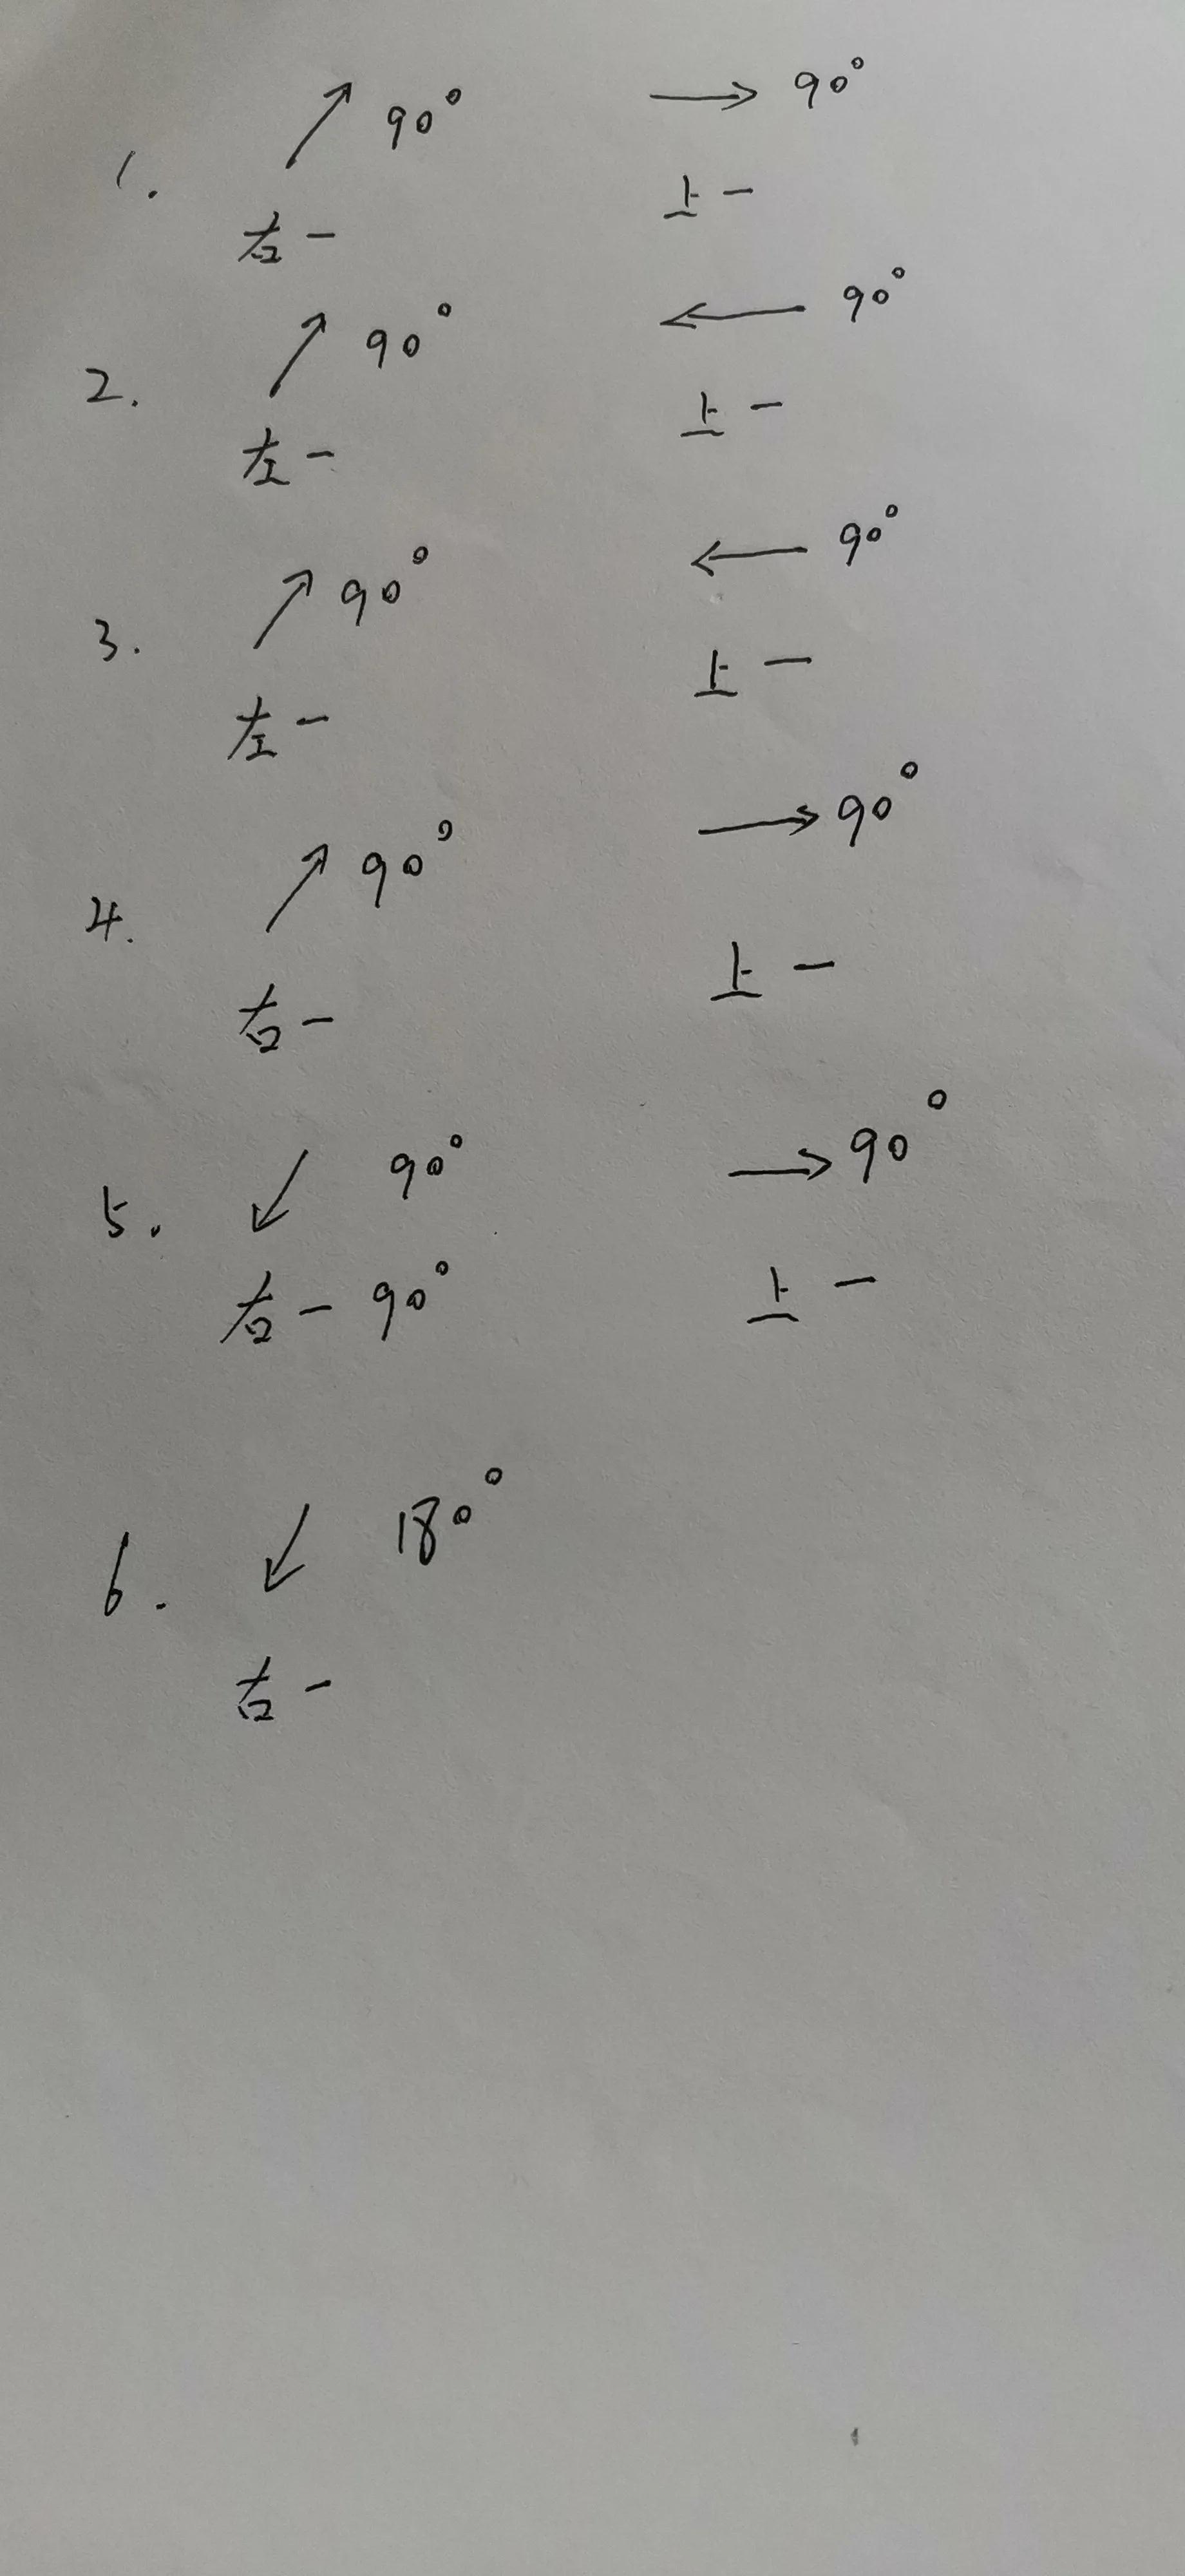 ↗ 90° → 90°
1.
右一 上一
↗ 90° ← 90°
2.
左一 上一
↗ 90° ← 90°
3.
左一 上一
↗ 90° → 90°
4.
右一 上一
↙ 90° → 90°
5.
右一 90° 上一
↙ 180°
6.
右一